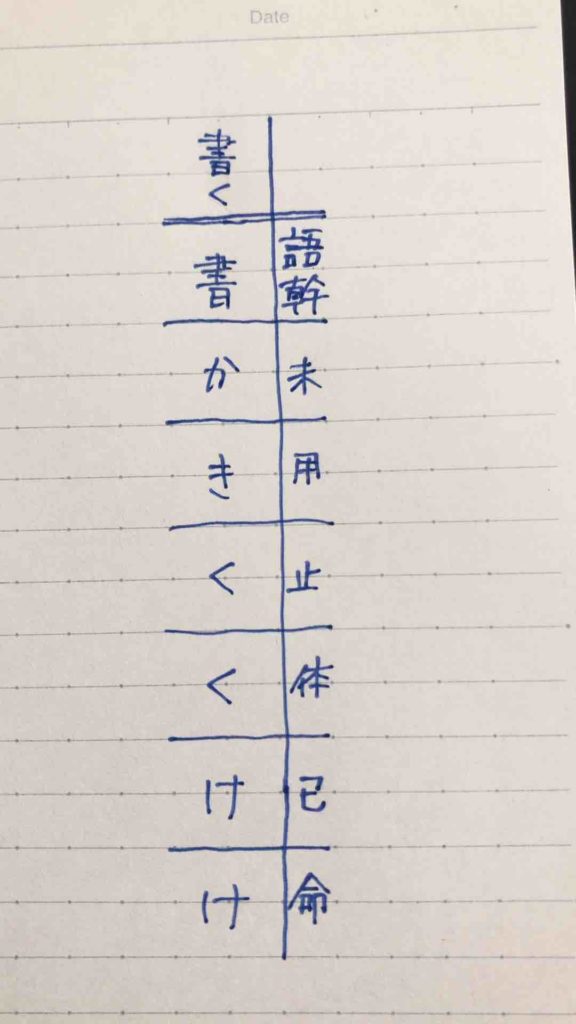 Date
語幹 未 用 止 体 已 命
書く 書 か き く く け け